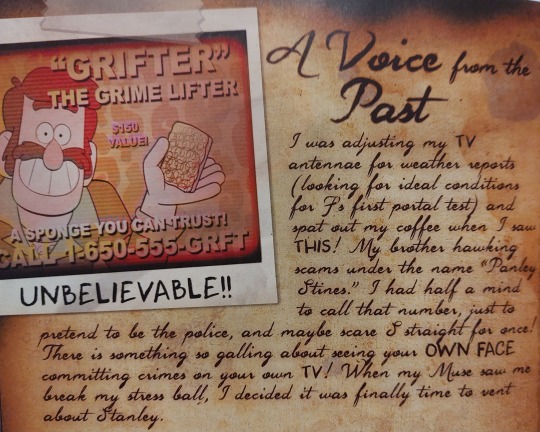 "GRIFTER"
THE GRIME LIFTER
$150
VALUE!
A SPONGE YOU CAN TRUST!
CALL 1-650-555-GRFT
UNBELIEVABLE!!
A Voice from the
Past
I was adjusting my TV
antennae for weather reports
(looking for ideal conditions
for F's first portal test) and
spat out my coffee when I saw
THIS! My brother hawking
scams under the name "Panley
Stines." I had half a mind
to call that number, just to
pretend to be the police, and maybe scare S straight for once!
There is something so galling about seeing your OWN FACE
committing crimes on your own TV! When my Muse saw me
break my stress ball, I decided it was finally time to vent
about Stanley.